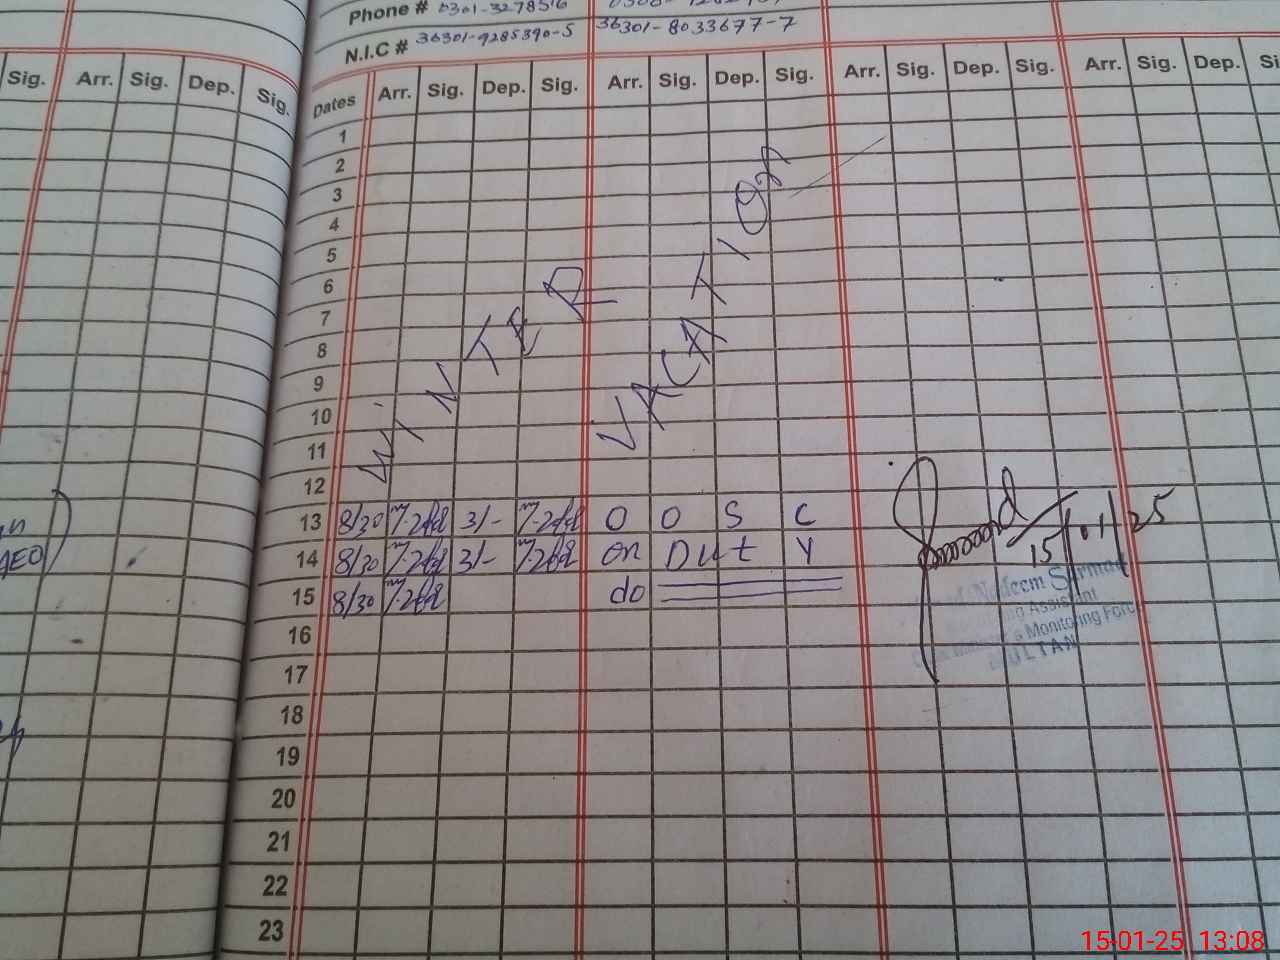 Phone # 0301-3278516
N.I.C # 36301-9285390-5 36301-8033677-7
Sig. Arr. Sig. Dep. Sig.
Dates Arr. Sig. Dep. Sig. Arr. Sig. Dep. Sig. Arr. Sig. Dep. Sig. Arr. Sig. Dep.
1
2
3
4
5
6
7
8
9
10
11
12
WINTER VACATION
13 8/30 3/- O O S C
14 8/30 3/- on Duty
15 8/30 do
15/01/25
Nadeem Sarmad
Monitoring Force
MULTAN
AEO)
16
17
18
19
20
21
22
23
15-01-25 13:08